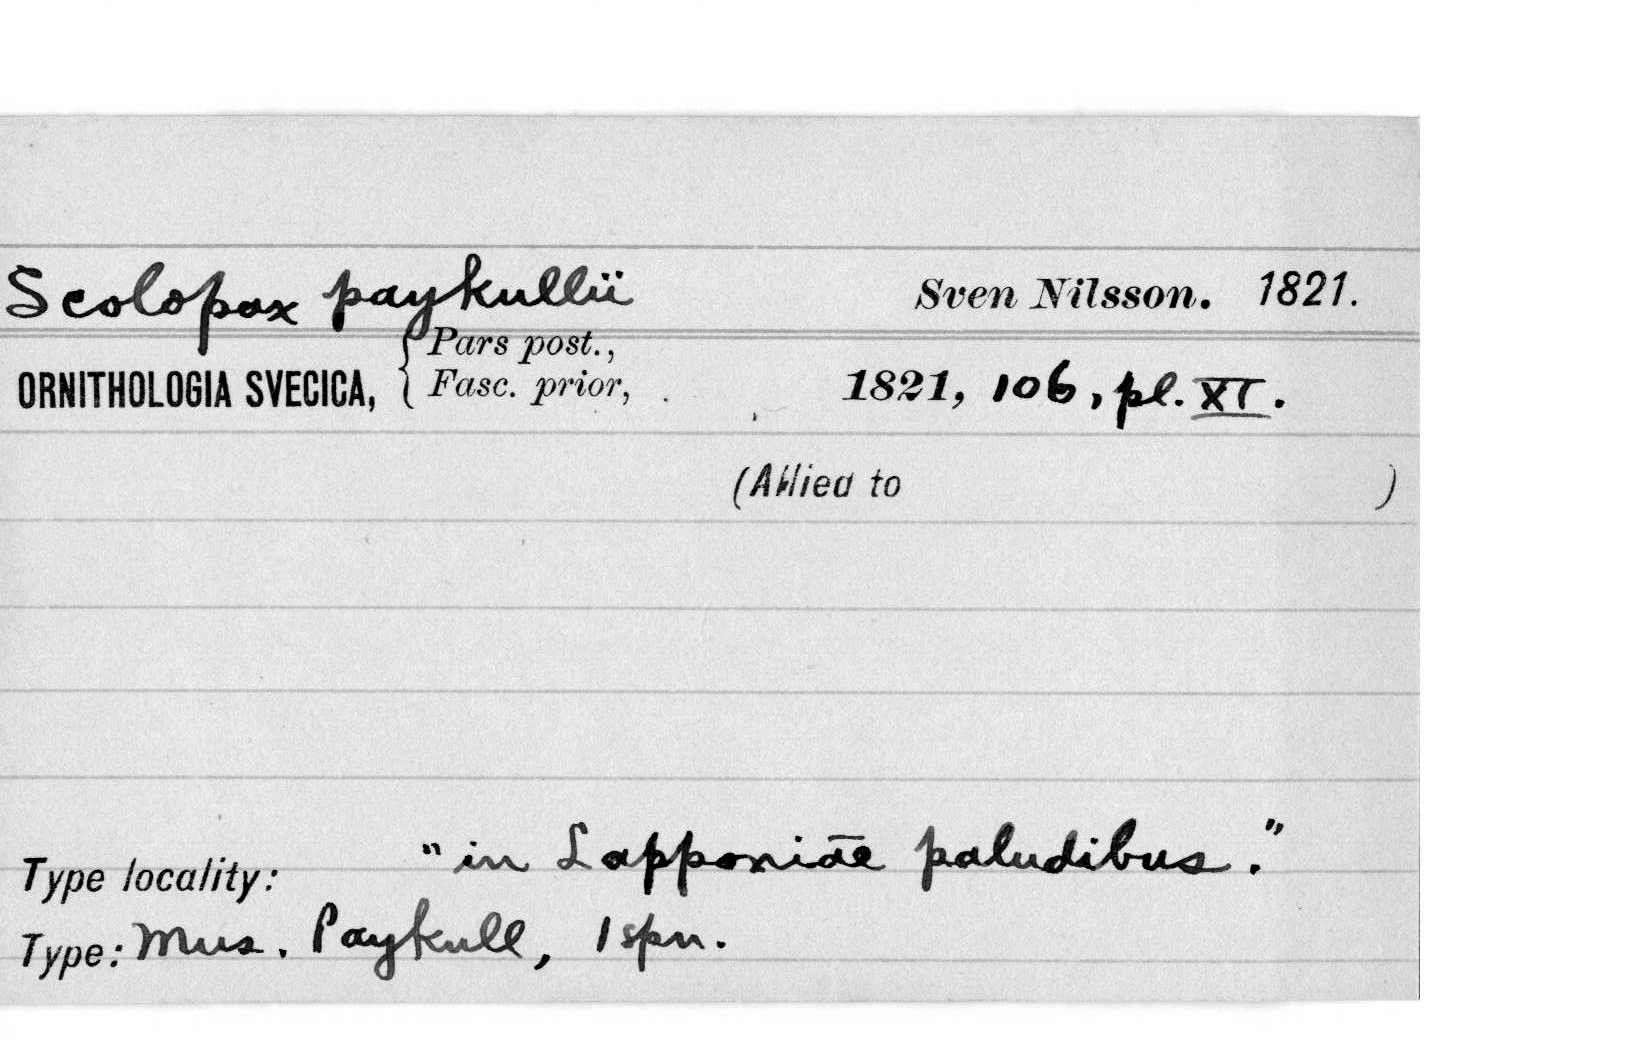 Scolopax paykullii Sven Nilsson. 1821.
ORNITHOLOGIA SVECICA, { Pars post., Fasc. prior, 1821, 106, pl. XI.
(Allied to )
Type locality: "in Lapponiae paludibus."
Type: Mus. Paykull, 1 spn.